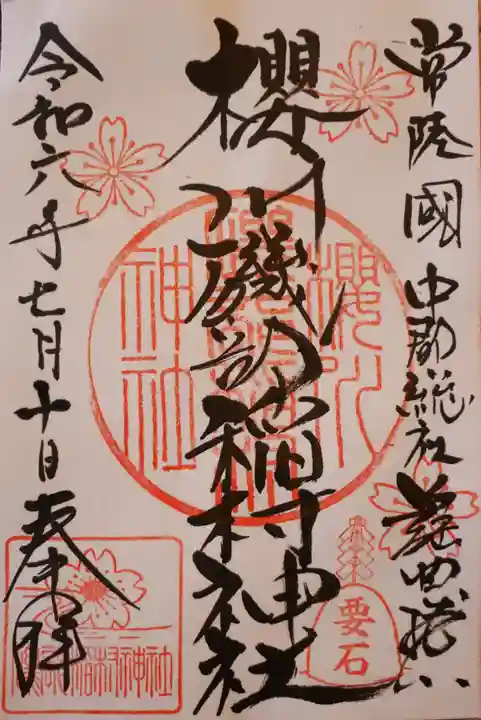 常陸國中郡総社 謡曲桜川
櫻川磯部稲村神社
令和六年七月十日奉拝
櫻川
磯部稲村
神社
要石
磯部稲村神社